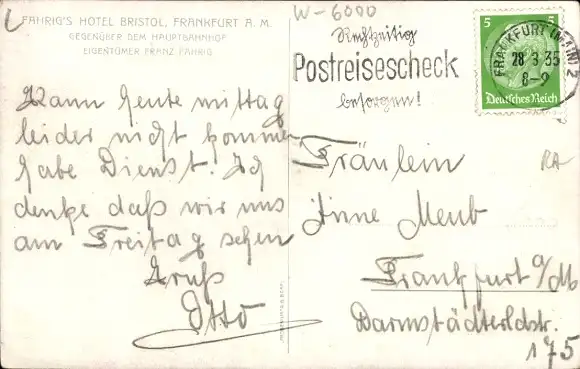 FAHRIG'S HOTEL BRISTOL, FRANKFURT A. M.
GEGENÜBER DEM HAUPTBAHNHOF
EIGENTÜMER FRANZ FAHRIG
W-6000
Rechtzeitig
Postreisescheck
besorgen!
5 5
FRANKFURT (MAIN) 2
28 3 35
8-9
Deutsches Reich
Kann heute mittag
leider nicht kommen
habe Dienst. Ich
denke daß wir uns
am Freitag sehen
Gruß
Otto
Fräulein
Änne Meub
Frankfurt a/M
Darmstädterldstr.
175
RA